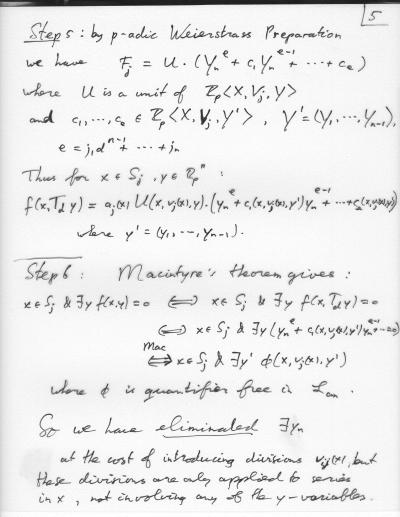 5
Step 5: by p-adic Weierstrass Preparation
we have F_j = U · (Y_n^e + c_1 Y_n^{e-1} + ··· + c_e)
where U is a unit of ℤ_p<X, V_j, Y>
and c_1, ..., c_e ∈ ℤ_p<X, V_j, Y'>, Y' = (Y_1, ..., Y_{n-1}),
e = j_1 d^{n-1} + ··· + j_n
Thus for x ∈ S_j, y ∈ ℤ_p^n :
f(x, T_d y) = a_j(x) U(x, v_j(x), y) · (y_n^e + c_1(x, v_j(x), y') y_n^{e-1} + ··· + c_e(x, v_j(x), y'))
where y' = (y_1, ..., y_{n-1}).
Step 6: Macintyre's theorem gives :
x ∈ S_j & ∃y f(x,y) = 0 ⟺ x ∈ S_j & ∃y f(x, T_d y) = 0
⟺ x ∈ S_j & ∃y (y_n^e + c_1(x, v_j(x), y') y_n^{e-1} ··· = 0)
Mac
⟺ x ∈ S_j & ∃y' ϕ(x, v_j(x), y')
where ϕ is quantifier free in L_an .
So we have eliminated ∃y_n
at the cost of introducing divisions v_j(x), but
these divisions are only applied to series
in x, not involving any of the y-variables.